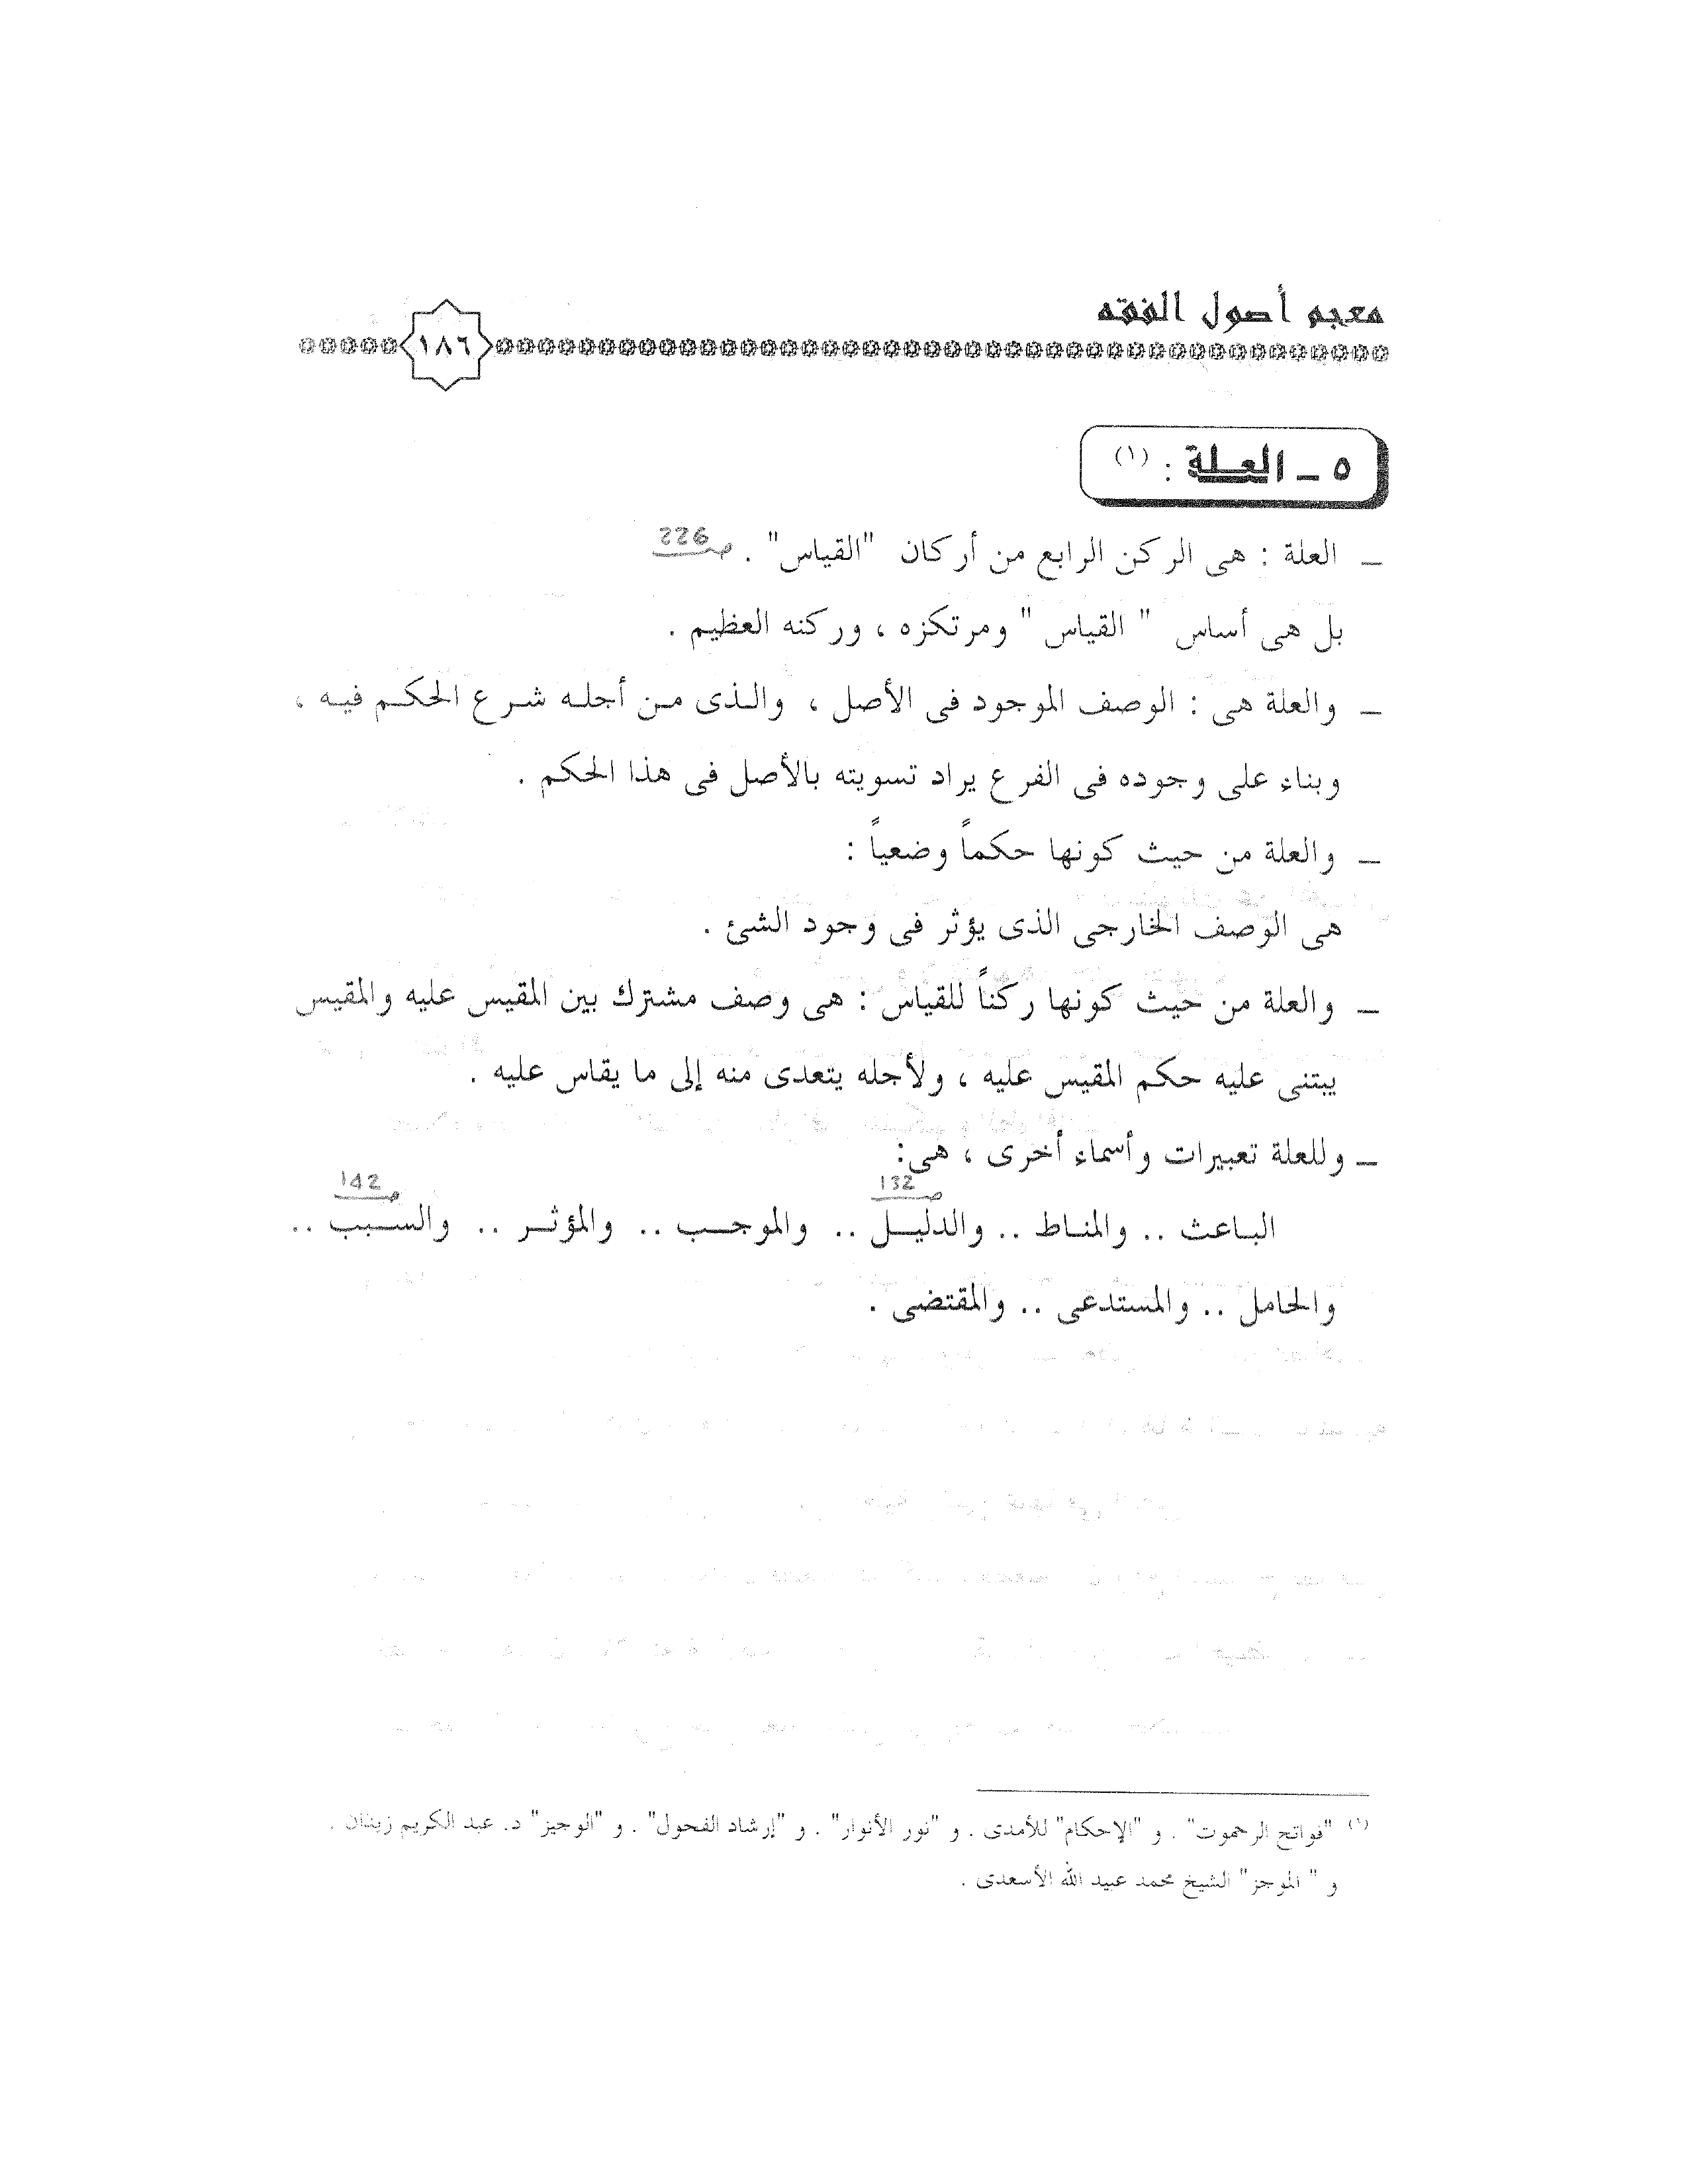 معجم أصول الفقه
١٨٦
٥ ـ العلة : (١)
ـ العلة : هى الركن الرابع من أركان "القياس" . صـ 226
بل هى أساس " القياس " ومرتكزه ، وركنه العظيم .
ـ والعلة هى : الوصف الموجود فى الأصل ، والـذى مـن أجلـه شـرع الحكـم فيـه ،
وبناء على وجوده فى الفرع يراد تسويته بالأصل فى هذا الحكم .
ـ والعلة من حيث كونها حكماً وضعياً :
هى الوصف الخارجى الذى يؤثر فى وجود الشئ .
ـ والعلة من حيث كونها ركناً للقياس : هى وصف مشترك بين المقيس عليه والمقيس
يبتنى عليه حكم المقيس عليه ، ولأجله يتعدى منه إلى ما يقاس عليه .
ـ وللعلة تعبيرات وأسماء أخرى ، هى:
صـ 132 صـ 142
البـاعث .. والمنـاط .. والدليـل .. والموجـب .. والمؤثـر .. والسـبب ..
والحامل .. والمستدعى .. والمقتضى .
(١) "فواتح الرحموت" . و "الإحكام" للأمدى . و "نور الأنوار" . و "إرشاد الفحول" . و "الوجيز" د. عبد الكريم زيدان .
و " الموجز" الشيخ محمد عبيد الله الأسعدى .